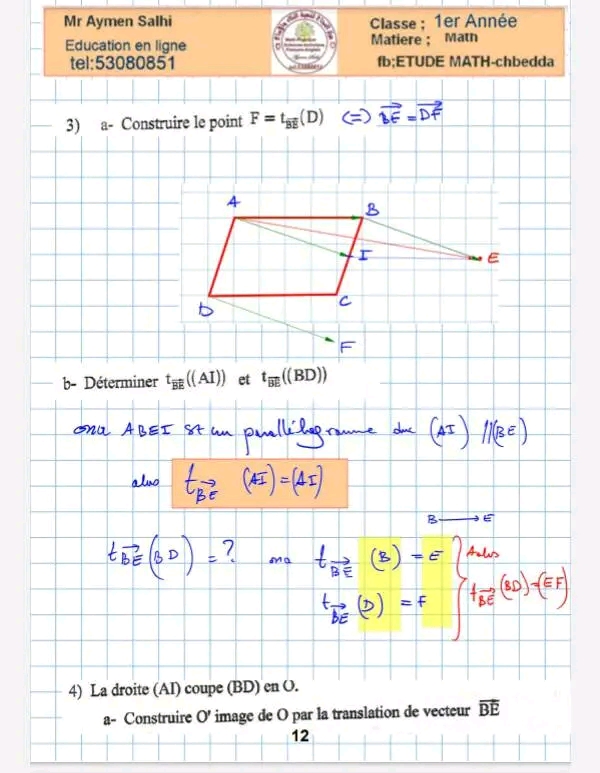 Mr Aymen Salhi
Education en ligne
tel:53080851
Classe ; 1er Année
Matiere ; Math
fb;ETUDE MATH-chbedda
3) a- Construire le point F = t_BE⃗(D) (=) BE⃗ = DF⃗
A
B
I
E
D
C
F
b- Déterminer t_BE⃗((AI)) et t_BE⃗((BD))
ona ABEI st un parallélogramme duc (AI) //(BE)
alos t_BE⃗ (AI)=(AI)
B → E
t_BE⃗(BD) = ? ona t_BE⃗ (B) = E
t_BE⃗ (D) = F
Aalos
t_BE⃗(BD)=(EF)
4) La droite (AI) coupe (BD) en O.
a- Construire O' image de O par la translation de vecteur BE⃗
12